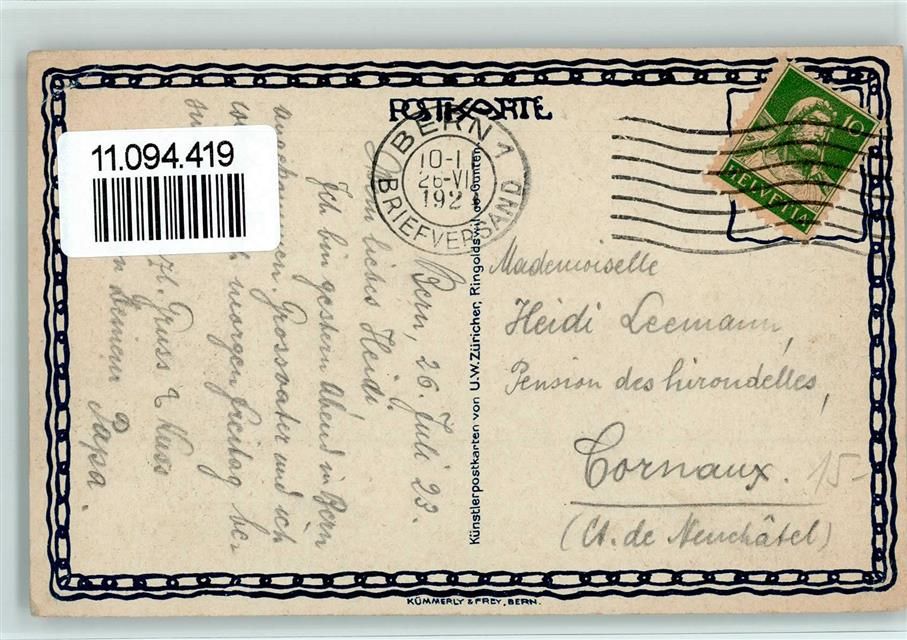 POSTKARTE
11.094.419
BERN 1
10-1
26-VI
192
BRIEFVERSAND
10
HELVETIA
Bern, 26. Juli 23.
Mein liebes Heidi.
Ich bin gestern Abend in Bern
angekommen. Grossvater und ich
morgen Freitag be-
su
Gruss & Kuss
Deinem Papa.
Künstlerpostkarten von U.W. Züricher, Ringoldswil ob Gunten.
Mademoiselle
Heidi Leemann,
Pension des hirondelles,
Cornaux.
15-
(Ct. de Neuchâtel)
KÜMMERLY & FREY, BERN.